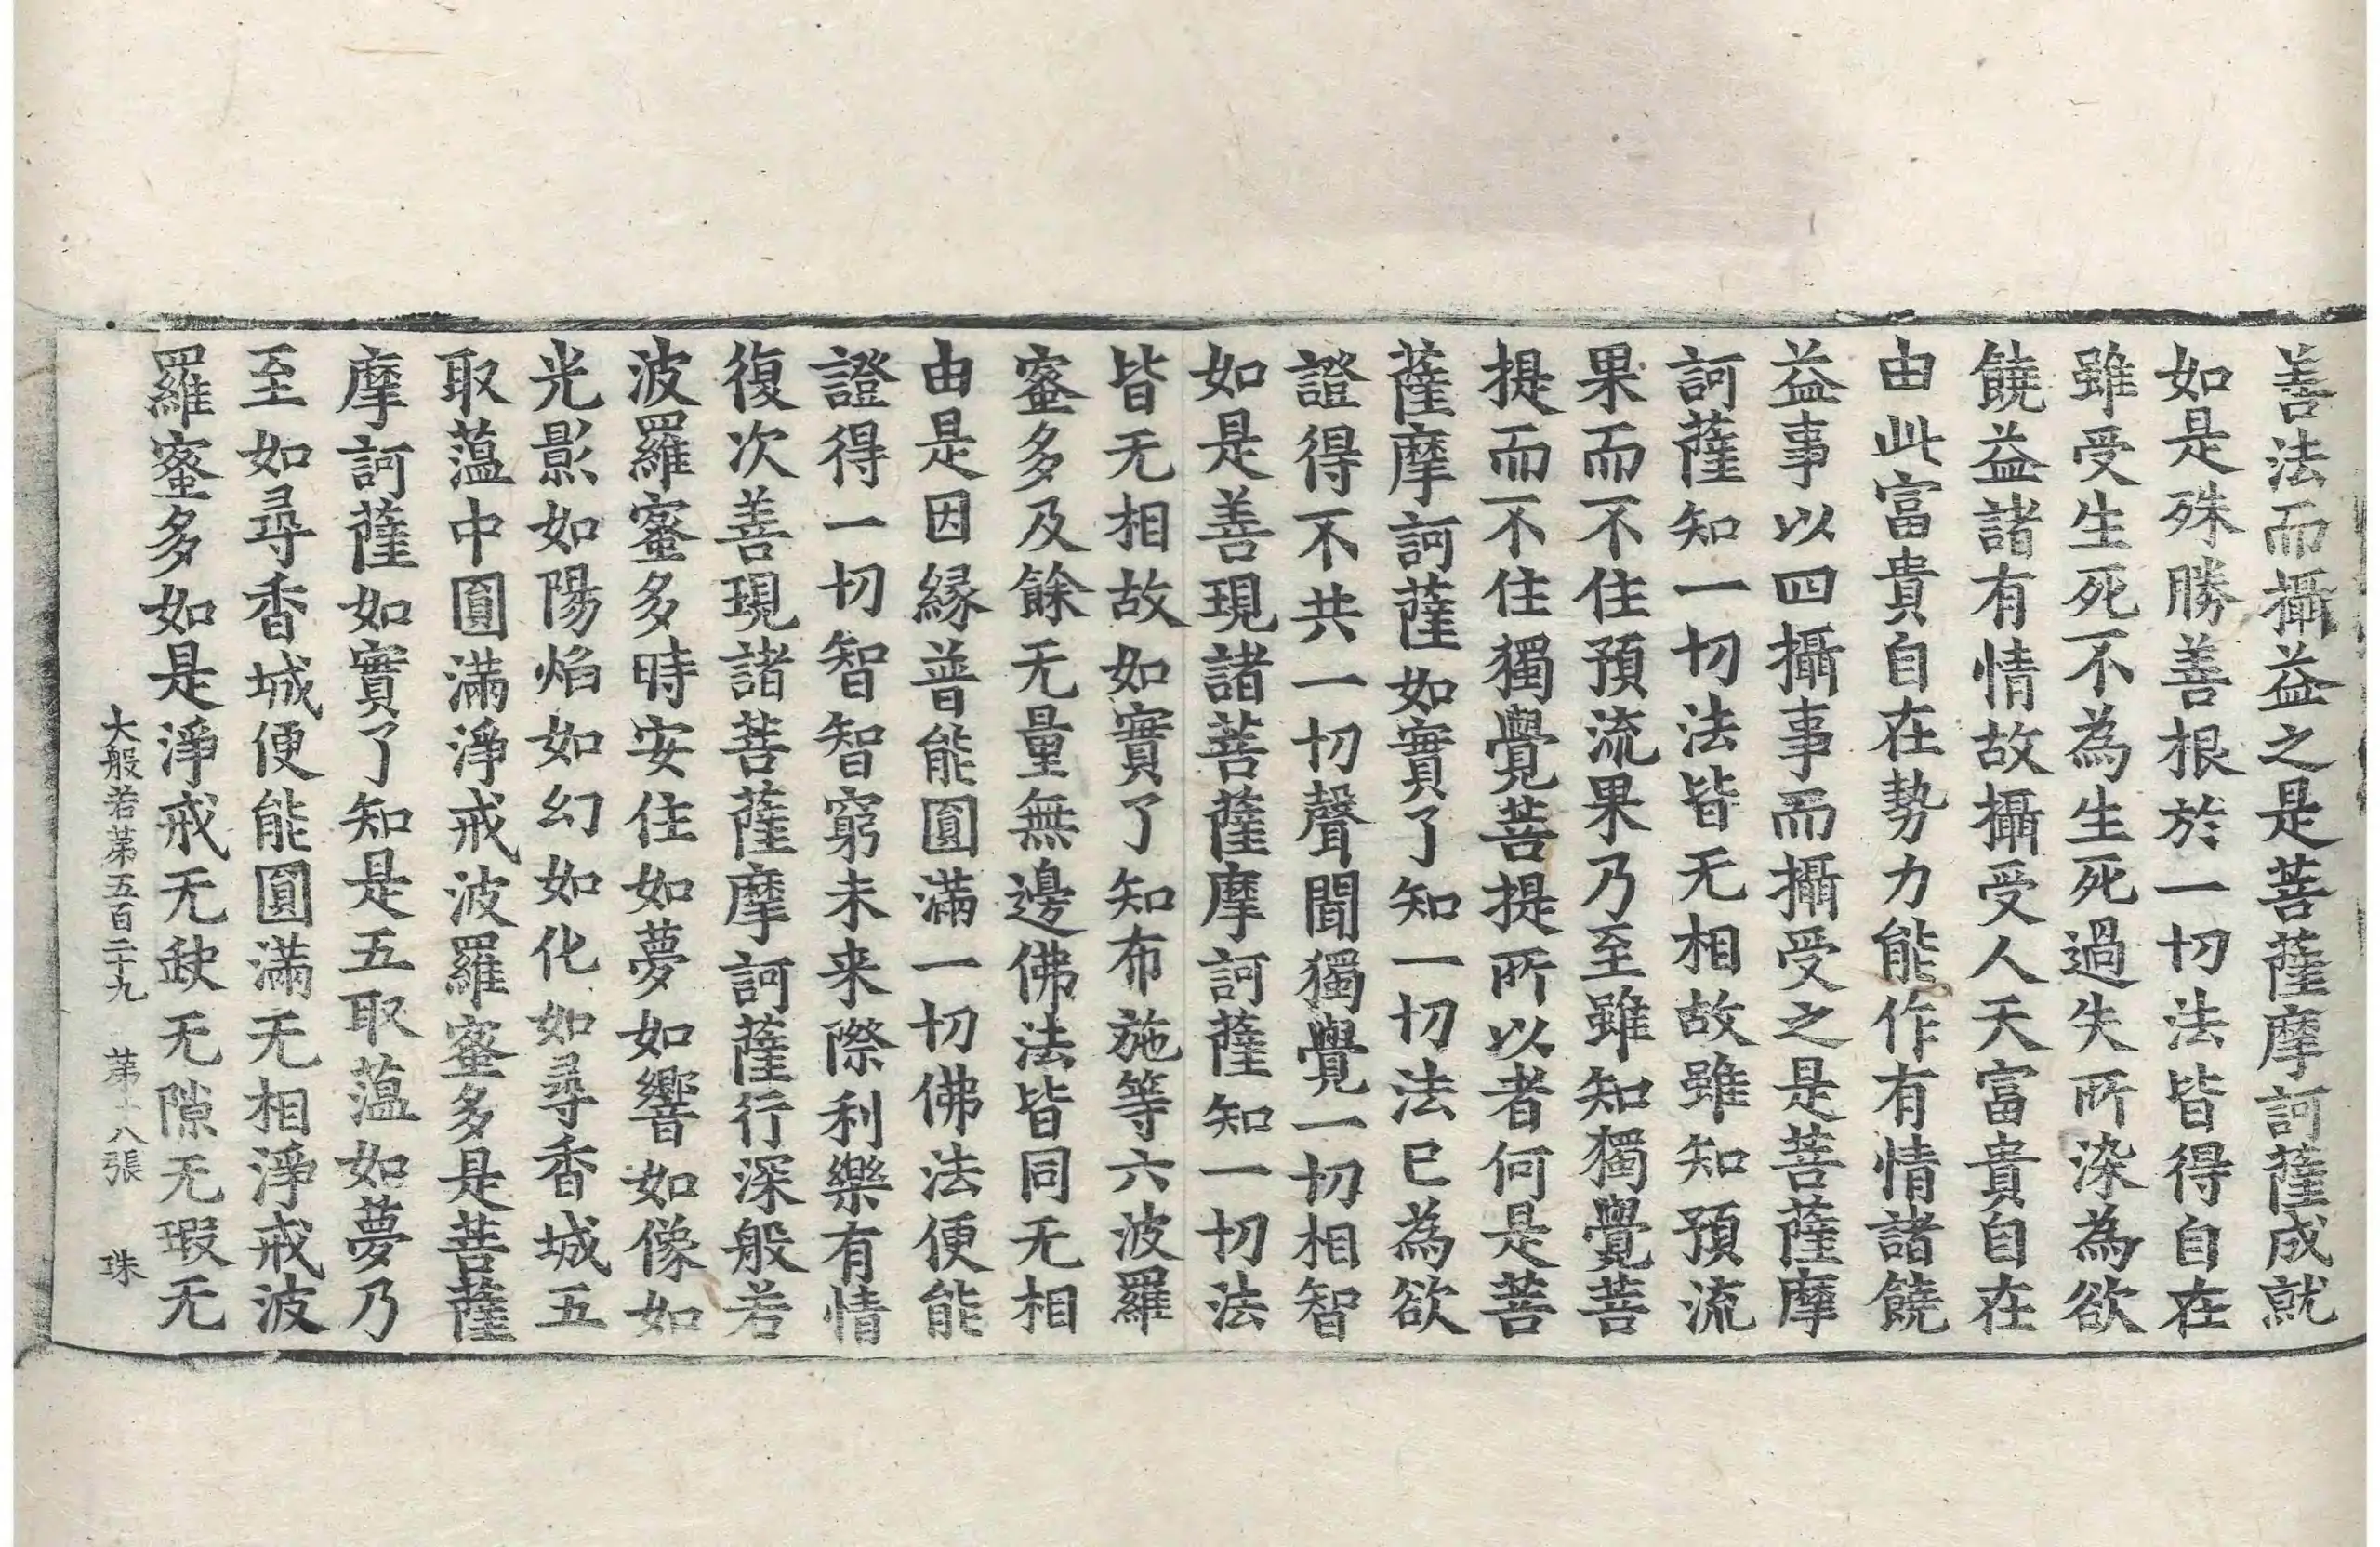 善法而攝益之是菩薩摩訶薩成就
如是殊勝善根於一切法皆得自在
雖受生死不為生死過失所染為欲
饒益諸有情故攝受人天富貴自在
由此富貴自在勢力能作有情諸饒
益事以四攝事而攝受之是菩薩摩
訶薩知一切法皆无相故雖知預流
果而不住預流果乃至雖知獨覺菩
提而不住獨覺菩提所以者何是菩
薩摩訶薩如實了知一切法已為欲
證得不共一切聲聞獨覺一切相智
如是善現諸菩薩摩訶薩知一切法
皆无相故如實了知布施等六波羅
蜜多及餘无量無邊佛法皆同无相
由是因縁普能圓滿一切佛法便能
證得一切智智窮未来際利樂有情
復次善現諸菩薩摩訶薩行深般若
波羅蜜多時安住如夢如響如像如
光影如陽焰如幻如化如尋香城五
取蕰中圓滿淨戒波羅蜜多是菩薩
摩訶薩如實了知是五取蕰如夢乃
至如尋香城便能圓滿无相淨戒波
羅蜜多如是淨戒无缺无隙无瑕无
大般若苐五百二十九 苐十八張 珠